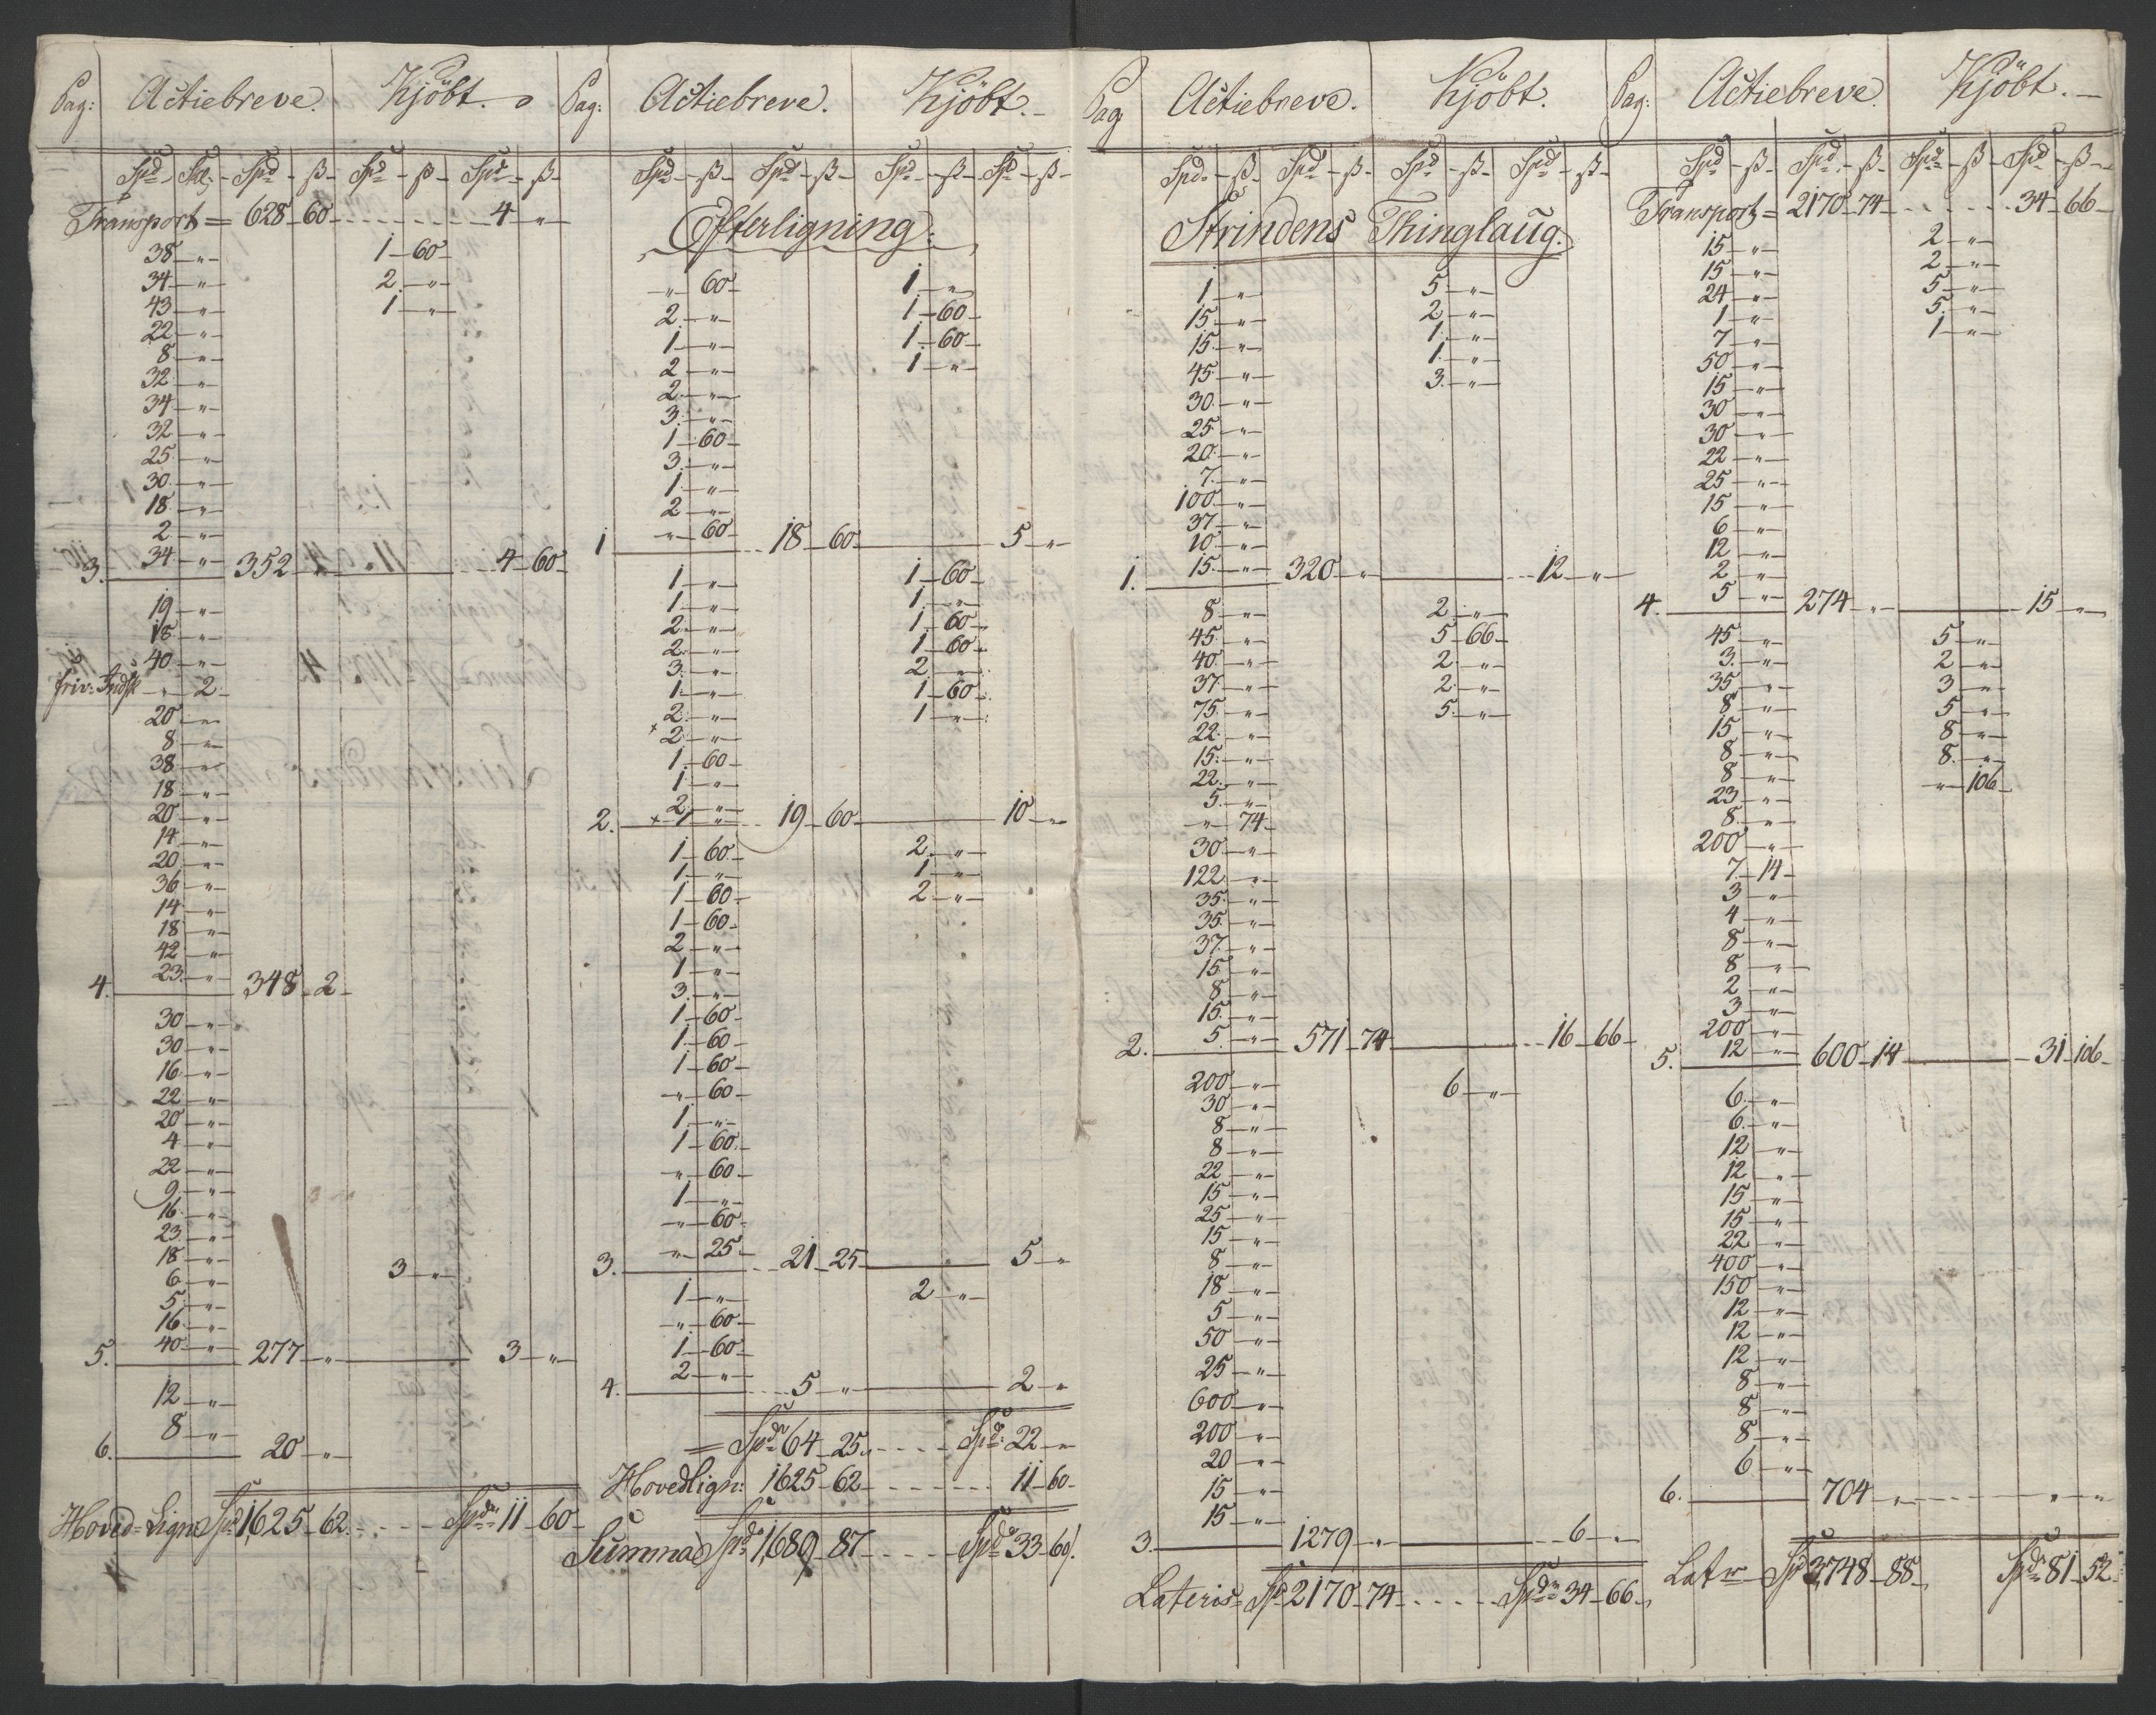 Pag: Actiebreve. Kjöbt.
Spd Sk. Spd ß Spd ß Spd ß
Transport = 628 60 4 "
38 " 1 60
34 " 2 "
43 " 1 "
22 "
8 "
32 "
34 "
32 "
25 "
30 "
18 "
2 "
3. 34 " 352 " 4 60
19 "
18 "
40 "
friv: Indsk " 2
20 "
8 "
38 "
18 "
20 "
14 "
20 "
36 "
14 "
18 "
42 "
4. 23 " 348 2
30 "
30 "
16 "
22 "
20 "
4 "
22 "
9 "
16 "
23 "
18 "
6 " 3 "
5 "
16 "
5. 40 " 277 " 3 "
12 "
8 "
6. 20 "
Hoved-Lign: Spd 1625 62 Spdr 11 60
Pag: Actiebreve. Kjöbt.
Spd ß Spd ß Spd ß Spd ß
Efterligning:
" 60 1 "
2 " 1 60
1 " 1 60
2 " 1 "
2 "
3 "
1 60
3 "
1 "
2 "
1 " 60 18 60 5 "
1 " 1 60
1 " 1 "
2 " 1 60
2 " 1 60
3 " 2 "
1 " 1 60
2 " 1 "
x 2 "
1 60
1 "
2 "
2. x 1 " 19 60 10 "
1 60 2 "
1 " 1 "
1 60 2 "
1 60
2 "
1 "
3 "
1 60
1 60
1 60
" 60
1 "
1 60
" 60
1 "
" 60
3. " 25 21 25 5 "
1 " 2 "
" 60
1 60
2 "
4. 5 " 2 "
= Spdr 64 25 Spd: 22 "
Hovedlign: 1625 62 11 60
Summa Spd 1689 87 Spdr 33 60
Pag Actiebreve. Kjöbt.
Spd ß Spd ß Spd ß Spd ß
Strindens Thinglaug.
1 " 5 "
15 " 2 "
15 " 1 "
45 " 1 "
30 " 3 "
25 "
20 "
7 "
100 "
37 "
10 "
1. 15 " 320 " 12 "
8 " 2 "
45 " 5 66
40 " 2 "
37 " 2 "
75 " 5 "
22 "
15 "
22 "
5 "
" 74
30 "
122 "
35 "
35 "
37 "
15 "
8 "
15 "
2. 5 " 571 74 16 66
200 " 6 "
30 "
8 "
8 "
22 "
15 "
25 "
15 "
8 "
18 "
5 "
50 "
25 "
600 "
200 "
20 "
15 "
15 "
3. 1279 " 6 "
Lateris Spd 2170 74 Spdr 34 66
Pag: Actiebreve. Kjöbt.
Spd ß Spd ß Spd ß Spd ß
Transport = 2170 74 34 66
15 " 2 "
15 " 2 "
24 " 5 "
1 " 5 "
7 " 1 "
50 "
15 "
30 "
30 "
22 "
25 "
15 "
6 "
12 "
2 "
4. 5 " 274 " 15 "
45 " 5 "
3 " 2 "
35 " 3 "
8 " 5 "
15 " 8 "
8 " 8 "
8 " " 106
23 "
8 "
200 "
7 14
3 "
4 "
8 "
8 "
2 "
3 "
200 "
5. 12 " 600 14 31 106
6 "
6 "
12 "
12 "
15 "
15 "
22 "
400 "
150 "
12 "
12 "
12 "
8 "
8 "
8 "
6 "
6. 704 " " "
Latr Spd 3748 88 Spdr 81 52